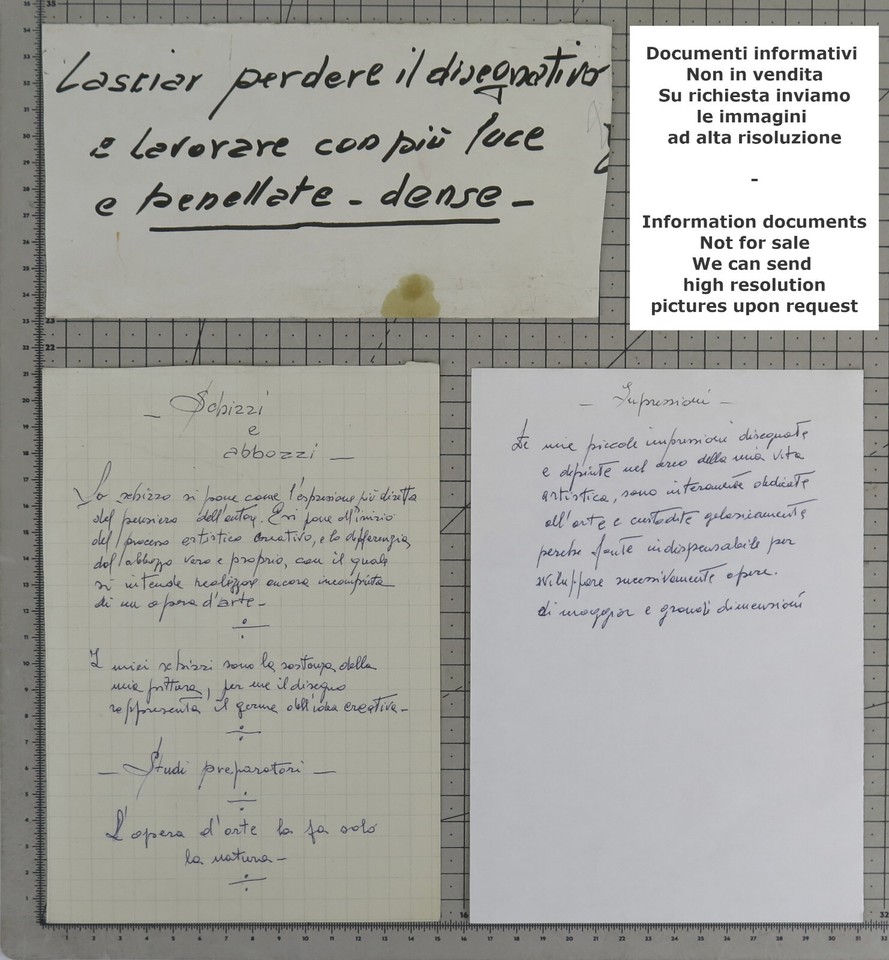 Lasciar perdere il disegnativo
e lavorare con più luce
e penellate - dense -
Documenti informativi
Non in vendita
Su richiesta inviamo
le immagini
ad alta risoluzione
-
Information documents
Not for sale
We can send
high resolution
pictures upon request
- Schizzi
e
abbozzi -
Lo schizzo si pone come l'espressione più diretta
del pensiero dell'autore. Esso pone all'inizio
del processo artistico creativo, e lo differenzia
dal abbozzo vero e proprio, con il quale
si intende realizzare ancora incompiuta
di un opera d'arte -
I miei schizzi sono la sostanza della
mia pittura, per me il disegno
rappresenta il germe dell'idea creativa -
- Studi preparatori -
L'opera d'arte la fa solo
la natura -
- Impressioni -
Le mie piccole impressioni disegnate
e dipinte nel arco della mia vita
artistica, sono interamente dedicate
all'arte e custodite gelosicamente
perche fonte indispensabile per
sviluppare successivamente opere.
di maggior e grandi dimensioni